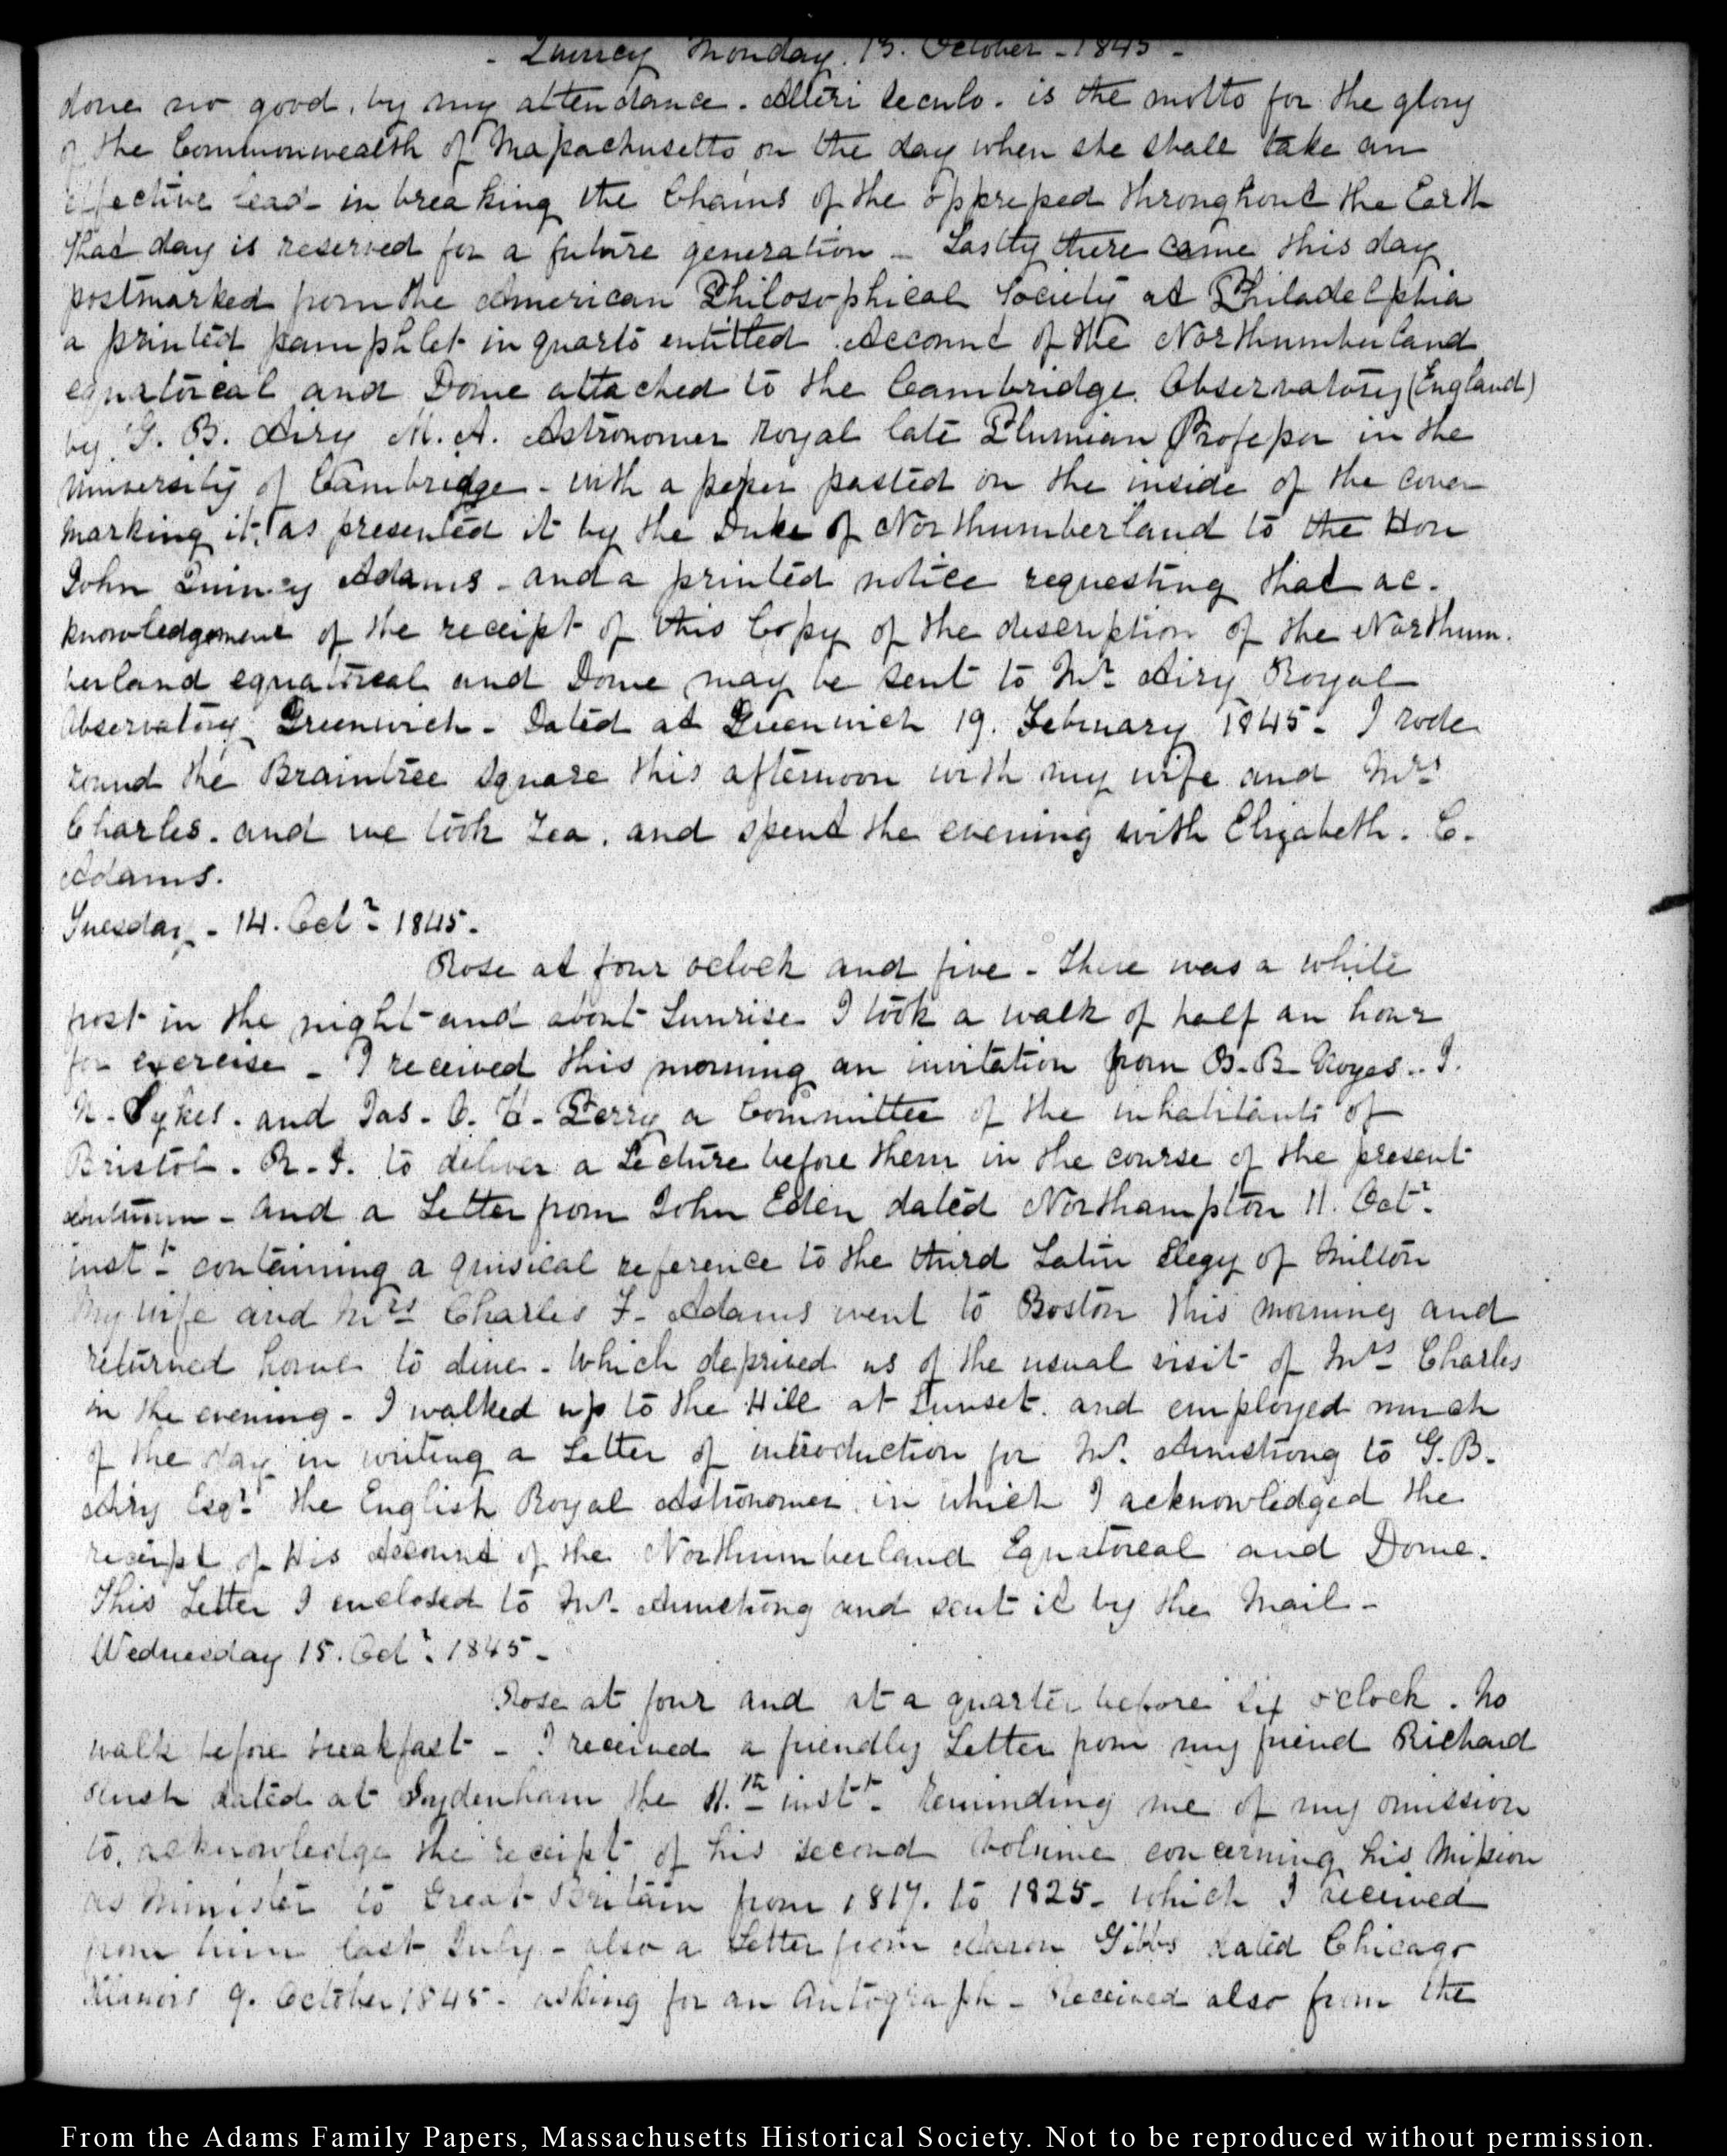 - Quincy Monday. 13. October - 1845 -
done no good, by my attendance. Alteri seculo. is the motto for the glory
of the Commonwealth of Massachusetts on the day when she shall take an
effective lead in breaking the Chains of the oppressed throughout the Earth
That day is reserved for a future generation - Lastly there came this day
postmarked from the American Philosophical Society at Philadelphia
a printed pamphlet in quarto entitled. Account of the Northumberland
equatoreal and Dome attached to the Cambridge Observatory (England)
by G. B. Airy M. A. Astronomer Royal late Plumian Professor in the
University of Cambridge - with a paper pasted on the inside of the cover
marking it, as presented it by the Duke of Northumberland to the Hon
John Quincy Adams - and a printed notice requesting that ac-
knowledgement of the receipt of this Copy of the description of the Northum-
berland equatoreal and Dome may be sent to Mr. Airy Royal
Observatory Greenwich - Dated at Greenwich 19. February 1845 - I rode
round the Braintree square this afternoon with my wife and Mrs
Charles. and we took Tea. and spent the evening with Elizabeth. C.
Adams.
Tuesday - 14. Octr. 1845.
Rose at four oclock and five - There was a white
frost in the night and about Sunrise I took a walk of half an hour
for exercise - I received this morning an invitation from B. B. Noyes - I.
N. Sykes. and Jas. D. W. Perry a Committee of the inhabitants of
Bristol. R. I. to deliver a Lecture before them in the course of the present
autumn - and a Letter from John Eden dated Northampton 11. Octr.
instt. containing a quisical reference to the third Latin Elegy of Milton
My wife and Mrs Charles F. Adams went to Boston this morning and
returned home to dine - which deprived us of the usual visit of Mrs Charles
in the evening - I walked up to the Hill at Sunset. and employed much
of the day in writing a Letter of introduction for Mr. Armstrong to G. B.
Airy Esqr. the English Royal Astronomer in which I acknowledged the
receipt of His Account of the Northumberland Equatoreal and Dome.
This Letter I enclosed to Mr. Armstrong and sent it by the Mail -
Wednesday 15. Octr. 1845 -
Rose at four and at a quarter before six oclock. No
walk before breakfast - I received a friendly Letter from my friend Richard
Rush dated at Sydenham the 11.th instt. Reminding me of my omission
to acknowledge the receipt of his second Volume concerning his Mission
as Minister to Great Britain from 1817. to 1825 - which I received
from him last July - also a Letter from Aaron Gibbs dated Chicago
Illinois 9. October 1845 - asking for an Autograph - Received also from the
From the Adams Family Papers, Massachusetts Historical Society. Not to be reproduced without permission.